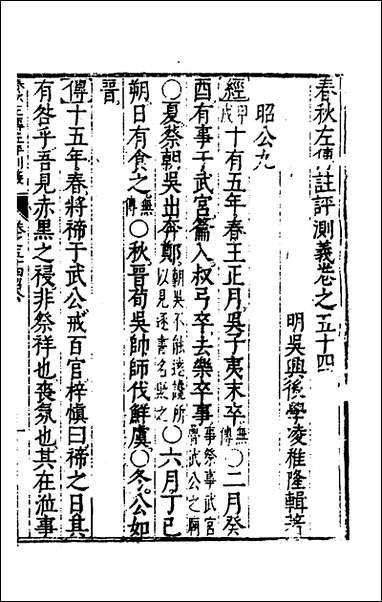 春秋左傳註評測義卷之五十四
明吳興後學凌稚隆輯著
昭公九
經甲戌十有五年春王正月吳子夷末卒無傳○二月癸
酉有事于武宮籥入叔弓卒去樂卒事事祭事武宮魯武公之廟
○夏蔡朝吳出奔鄭朝吳不能遠讒所以見逐書名罪之○六月丁巳
朔日有食之無傳○秋晉荀吳帥師伐鮮虞○冬公如
晉
傳十五年春將禘于武公戒百官梓慎曰禘之日其
有咎乎吾見赤黑之祲非祭祥也喪氛也其在涖事